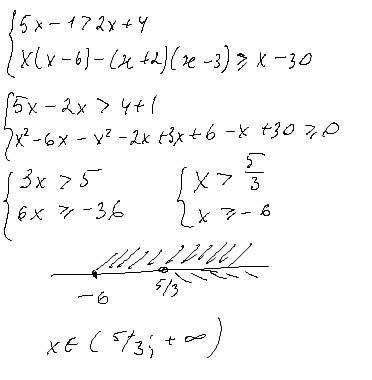 {5x - 1 > 2x + 4
{x(x - 6) - (x + 2)(x - 3) ≥ x - 30
{5x - 2x > 4 + 1
{x² - 6x - x² - 2x + 3x + 6 - x + 30 ≥ 0
{3x > 5 {x > 5/3
{6x ≥ -36 {x ≥ -6
-6 5/3
x ∈ (5/3; +∞)